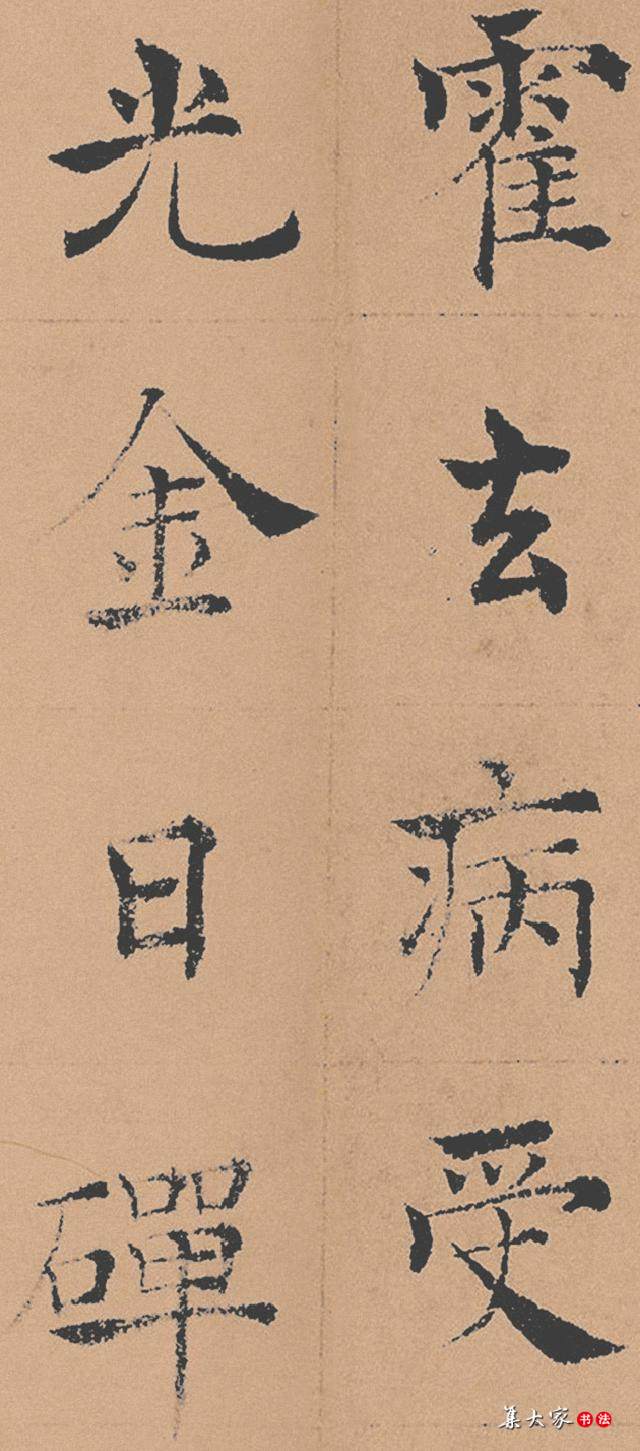 霍去病受
光金日磾
集大家书法